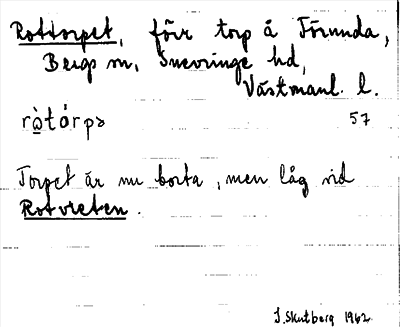 Rottorpet, förr torp å Förunda,
Bergs sn, Snevringe hd,
Västmanl. l.
ròtórps 57
Torpet är nu borta, men låg vid
Rotvreten.
I. Skutberg 1962